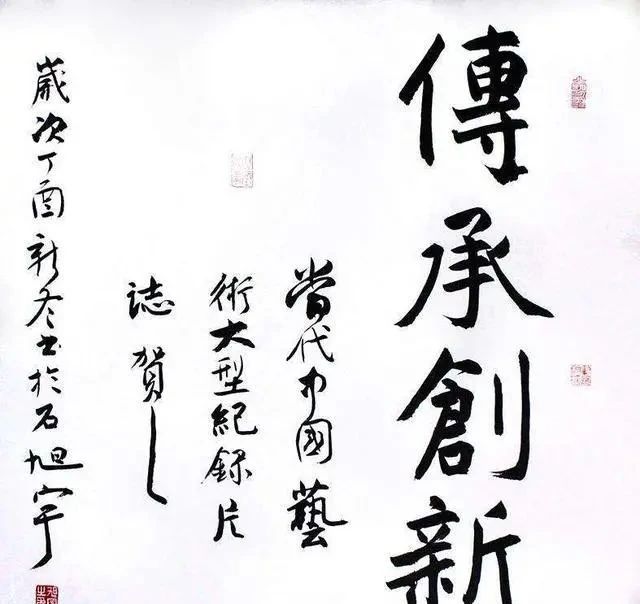 傳承創新
當代中國藝
術大型紀錄片
誌賀
歲次丁酉新冬書於石旭宇